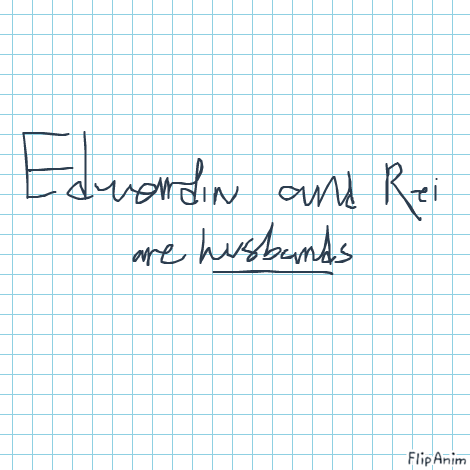 Edwardin and Rei
are husbands
FlipAnim